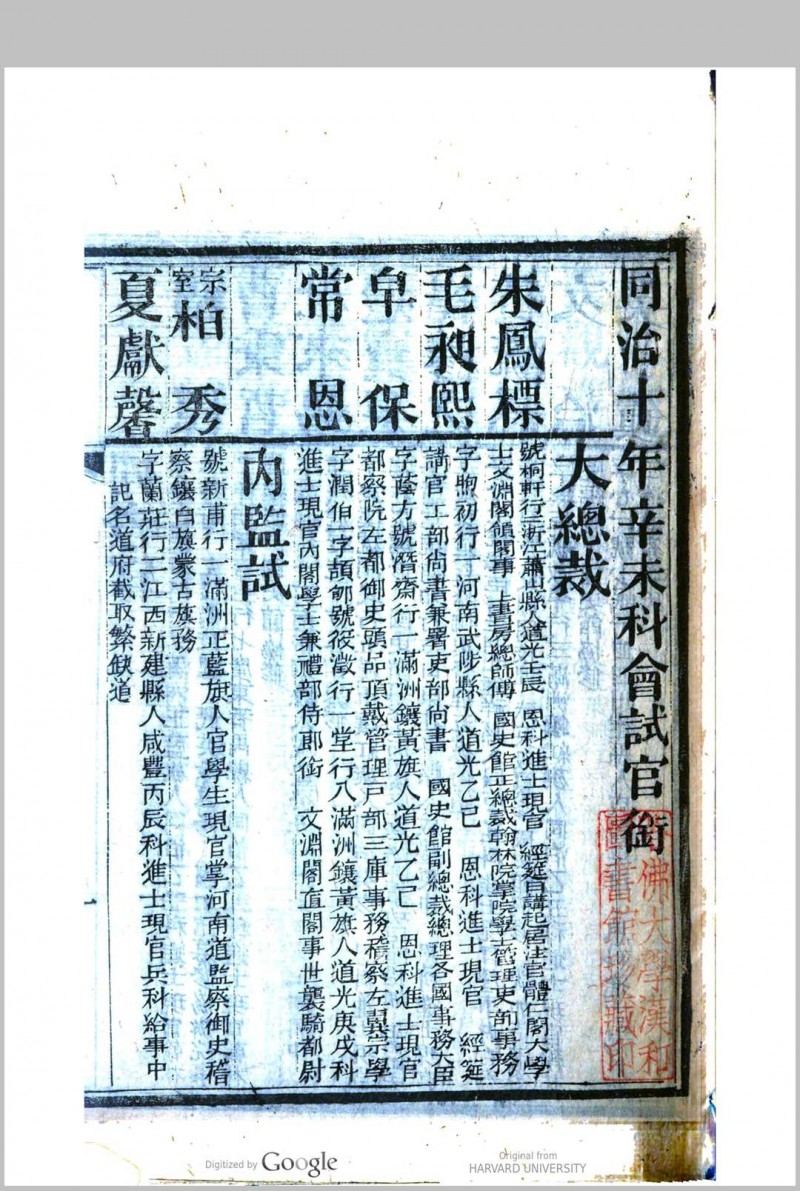 同治十年辛未科會試官銜
大總裁
朱鳳標
號桐軒行三浙江蕭山縣人道光壬辰 恩科進士現官 經筵日講起居注官體仁閣大學
士文淵閣領閣事 上書房總師傅 國史館正總裁翰林院掌院學士管理吏部事務
毛昶熙
字煦初行一河南武陟縣人道光乙巳 恩科進士現官 經筵
講官工部尚書兼署吏部尚書 國史館副總裁總理各國事務大臣
皁保
字蔭方號潛齋行一滿洲鑲黃旗人道光乙巳 恩科進士現官
都察院左都御史頭品頂戴管理戶部三庫事務稽察左翼宗學
常恩
字潤伯一字頡卿號筱澂行一堂行八滿洲鑲黃旗人道光庚戌科
進士現官內閣學士兼禮部侍郎銜 文淵閣直閣事世襲騎都尉
內監試
宗室柏秀
號新甫行一滿洲正藍旗人官學生現官掌河南道監察御史稽
察鑲白旗蒙古旗務
夏獻馨
字蘭莊行二江西新建縣人咸豐丙辰科進士現官兵科給事中
記名道府截取繁缺道
佛大學漢和
圖書館珍藏印
Digitized by Google
Original from
HARVARD UNIVERSITY